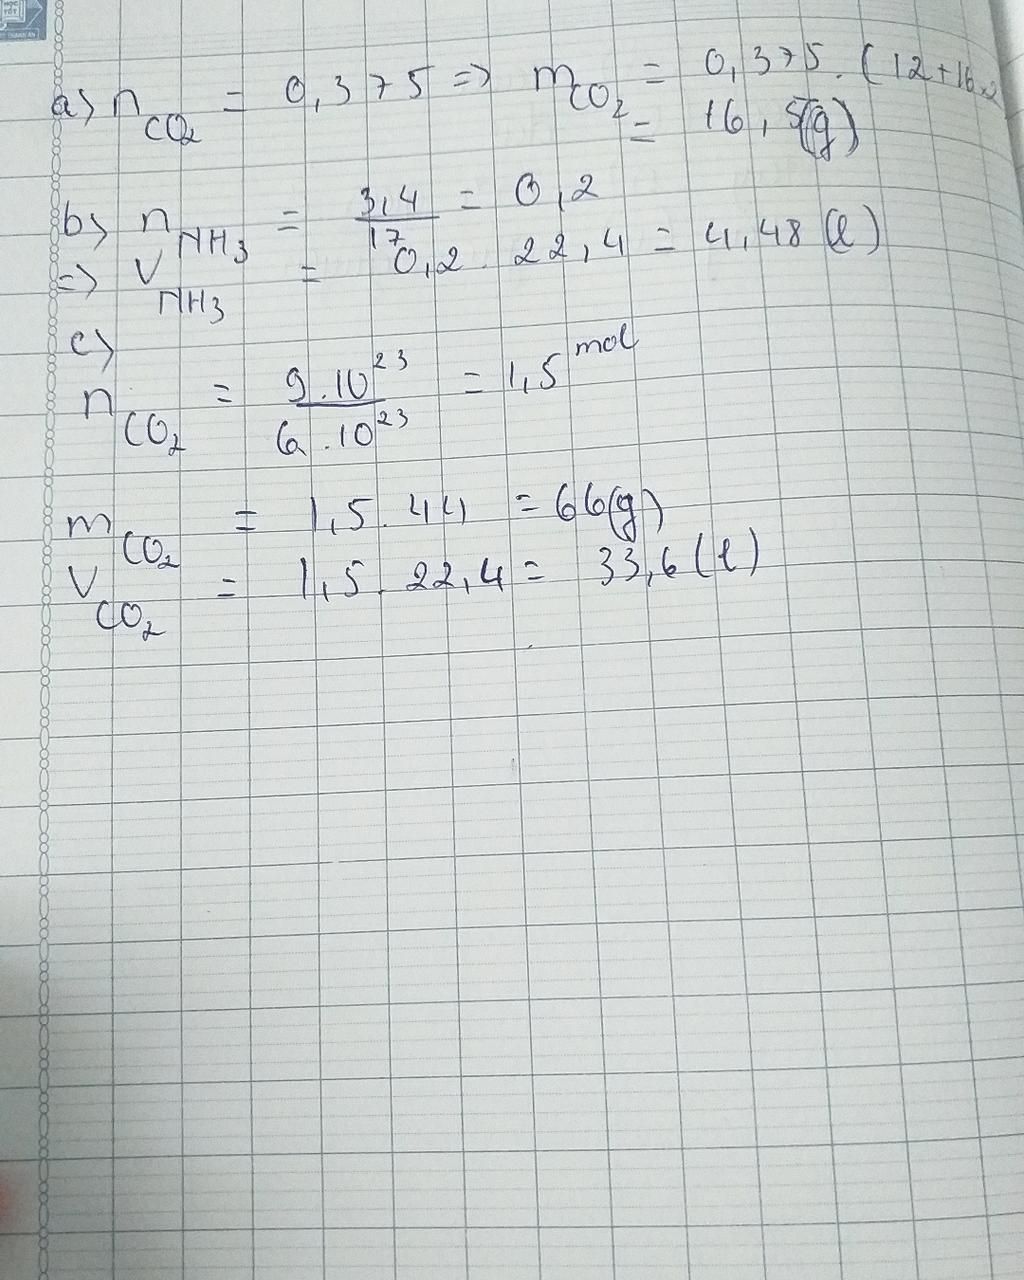 a) n_CO₂ = 0,375 => m_CO₂ = 0,375. (12+16.2
= 16,5(g)
b) n_NH₃ = 3,4/17 = 0,2
=> V_NH₃ = 0,2 . 22,4 = 4,48 (l)
c)
n_CO₂ = 9.10²³/6.10²³ = 1,5 mol
m_CO₂ = 1,5 . 44 = 66(g)
V_CO₂ = 1,5 . 22,4 = 33,6 (l)